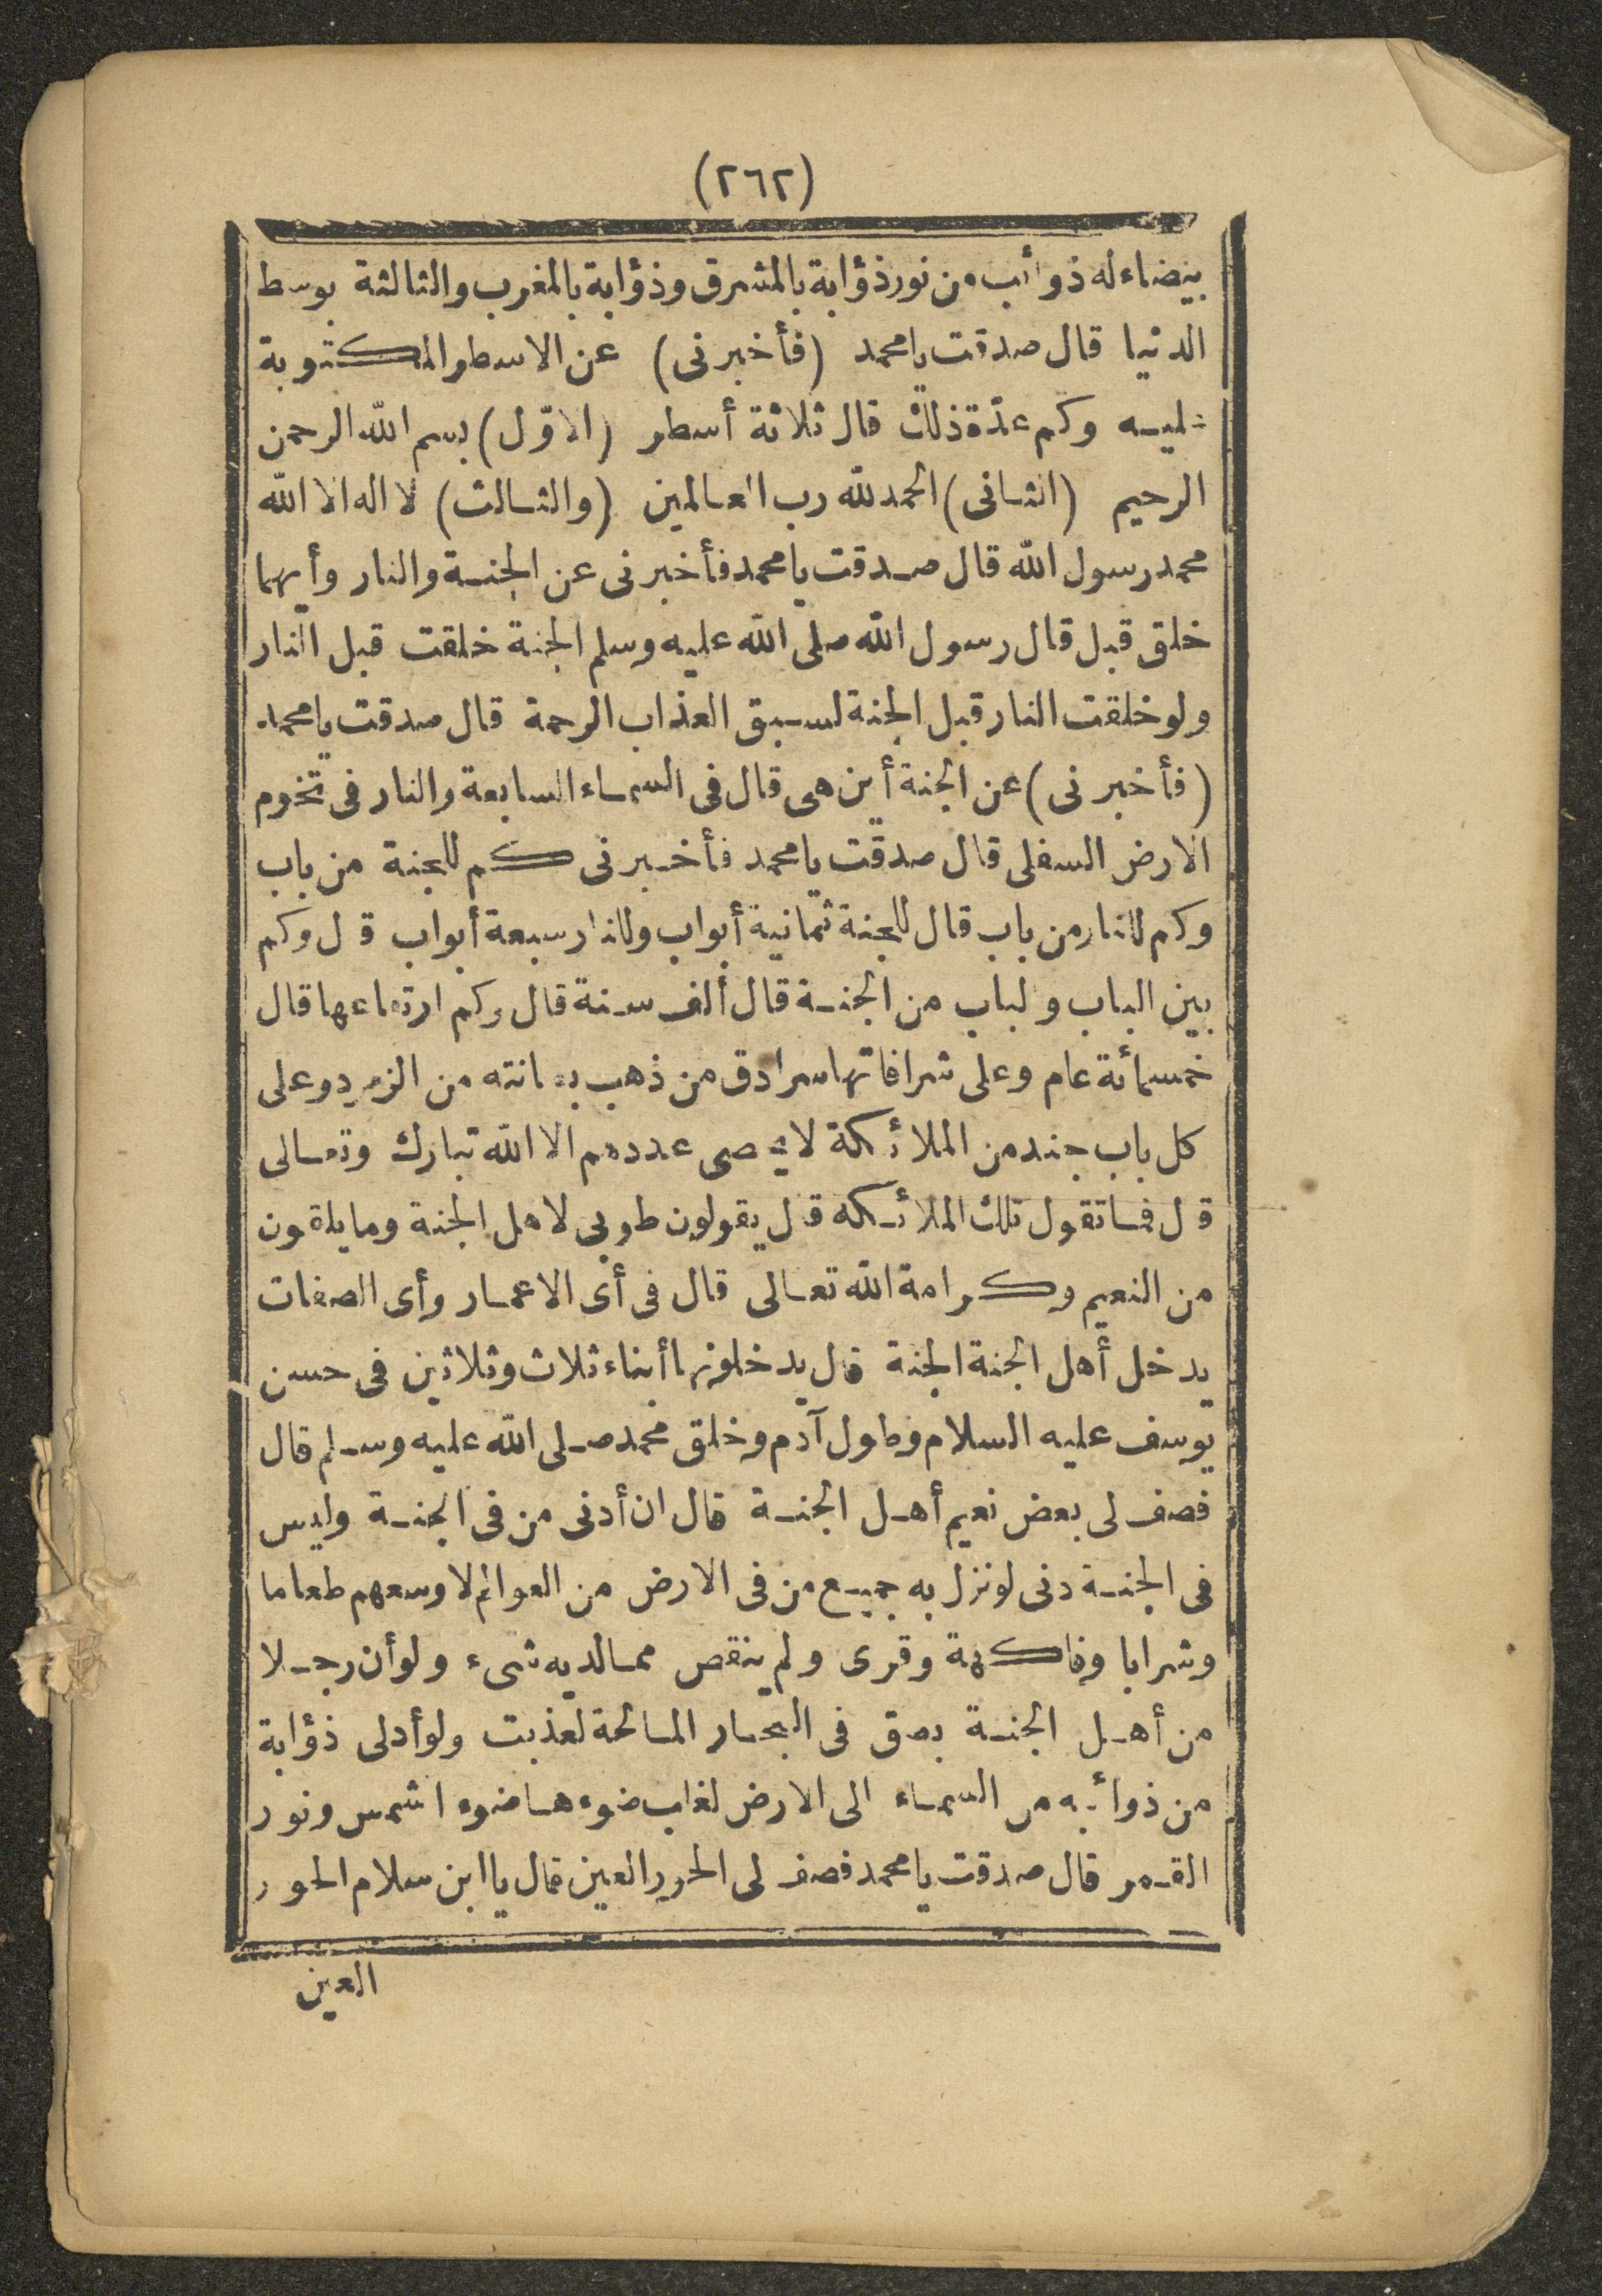 (٢٦٢)
بيضاء له ذوائب من نور ذؤابة بالمشرق وذؤابة بالمغرب والثالثة بوسط
الدنيا قال صدقت يا محمد (فأخبرنى) عن الاسطر المكتوبة
عليه وكم عدّة ذلك قال ثلاثة أسطر (الاوّل) بسم الله الرحمن
الرحيم (الثانى) الحمد لله رب العالمين (والثالث) لا اله الا الله
محمد رسول الله قال صدقت يا محمد فأخبرنى عن الجنة والنار وأيهما
خلق قبل قال رسول الله صلى الله عليه وسلم الجنة خلقت قبل النار
ولو خلقت النار قبل الجنة لسبق العذاب الرحمة قال صدقت يا محمد
(فأخبرنى) عن الجنة أين هى قال فى السماء السابعة والنار فى تخوم
الارض السفلى قال صدقت يا محمد فأخبرنى كم للجنة من باب
وكم للنار من باب قال للجنة ثمانية أبواب وللنار سبعة أبواب قال وكم
بين الباب والباب من الجنة قال ألف سنة قال وكم ارتفاعها قال
خمسمائة عام وعلى شرافاتها سرادق من ذهب بطانته من الزمرد وعلى
كل باب جند من الملائكة لا يحصى عددهم الا الله تبارك وتعالى
قال فما تقول تلك الملائكة قال يقولون طوبى لاهل الجنة وما يلقون
من النعيم وكرامة الله تعالى قال فى أى الاعمار وأى الصفات
يدخل أهل الجنة الجنة قال يدخلونها أبناء ثلاث وثلاثين فى حسن
يوسف عليه السلام وطول آدم وخلق محمد صلى الله عليه وسلم قال
فصف لى بعض نعيم أهل الجنة قال ان أدنى من فى الجنة وليس
فى الجنة دنى لو نزل به جميع من فى الارض من العوالم لاوسعهم طعاما
وشرابا وفاكهة وقرى ولم ينقص مما لديه شىء ولو أن رجلا
من أهل الجنة بصق فى البحار المالحة لعذبت ولو أدلى ذؤابة
من ذوائبه من السماء الى الارض لغاب ضوءها ضوء الشمس ونور
القمر قال صدقت يا محمد فصف لى الحور العين قال يا ابن سلام الحور
العين